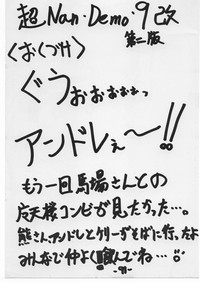 超 Nan・Demo・9 改
第二版
〈おくづけ〉
ぐうぉぉぉぉぉっ
アンドレぇ〜!!
もう一回馬場さんとの
応天様コンビが見たかった…。
熊さん、アンドレとケリーがそばに行ったよ
みんなで仲よく飲んでね…